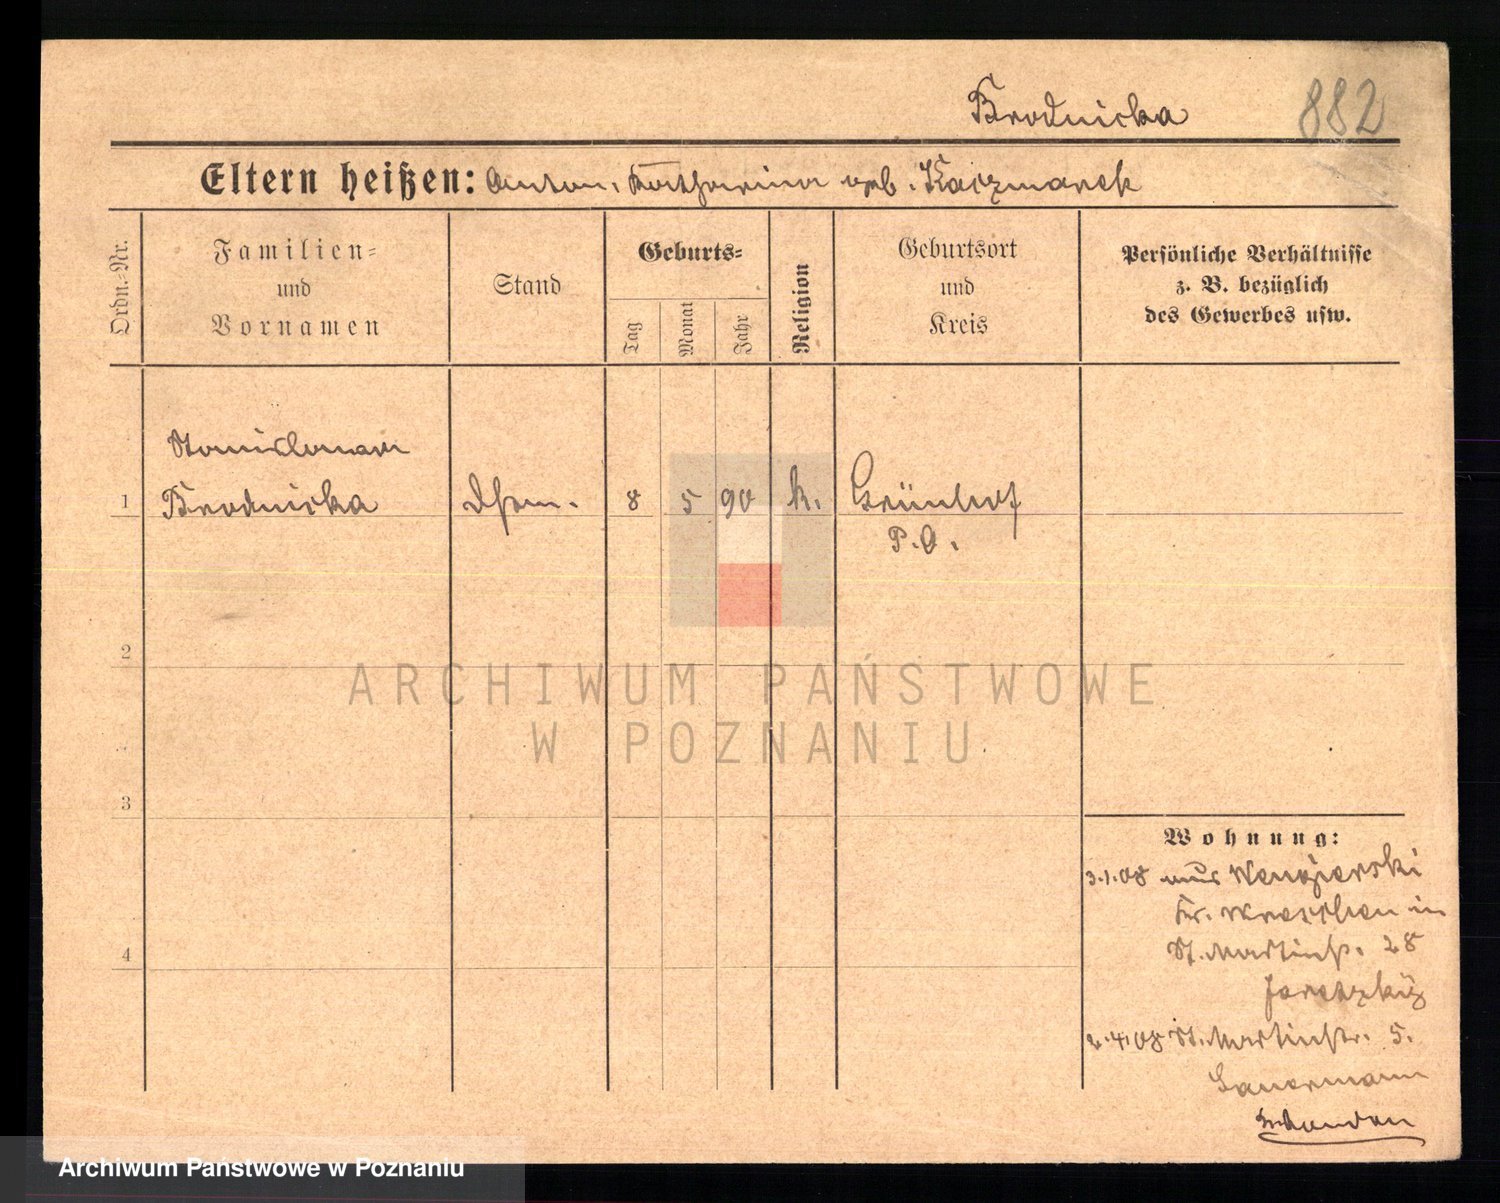 Brodnicka
882
Eltern heißen: Anton, Katharina geb. Kaczmarek
Ordn.-Nr.
Familien-
und
Vornamen
Stand
Geburts-
Tag
Monat
Jahr
Religion
Geburtsort
und
Kreis
Persönliche Verhältnisse
z. B. bezüglich
des Gewerbes usw.
Stanislawa
1 Brodnicka 8 5 90 k. Grünhof
P. O.
2
ARCHIWUM PAŃSTWOWE
W POZNANIU
3
Wohnung:
3.1.08 aus
Kr. Wreschen in
St. Martinstr. 28
4
2.4.08 St. Martinstr. 5.
Archiwum Państwowe w Poznaniu